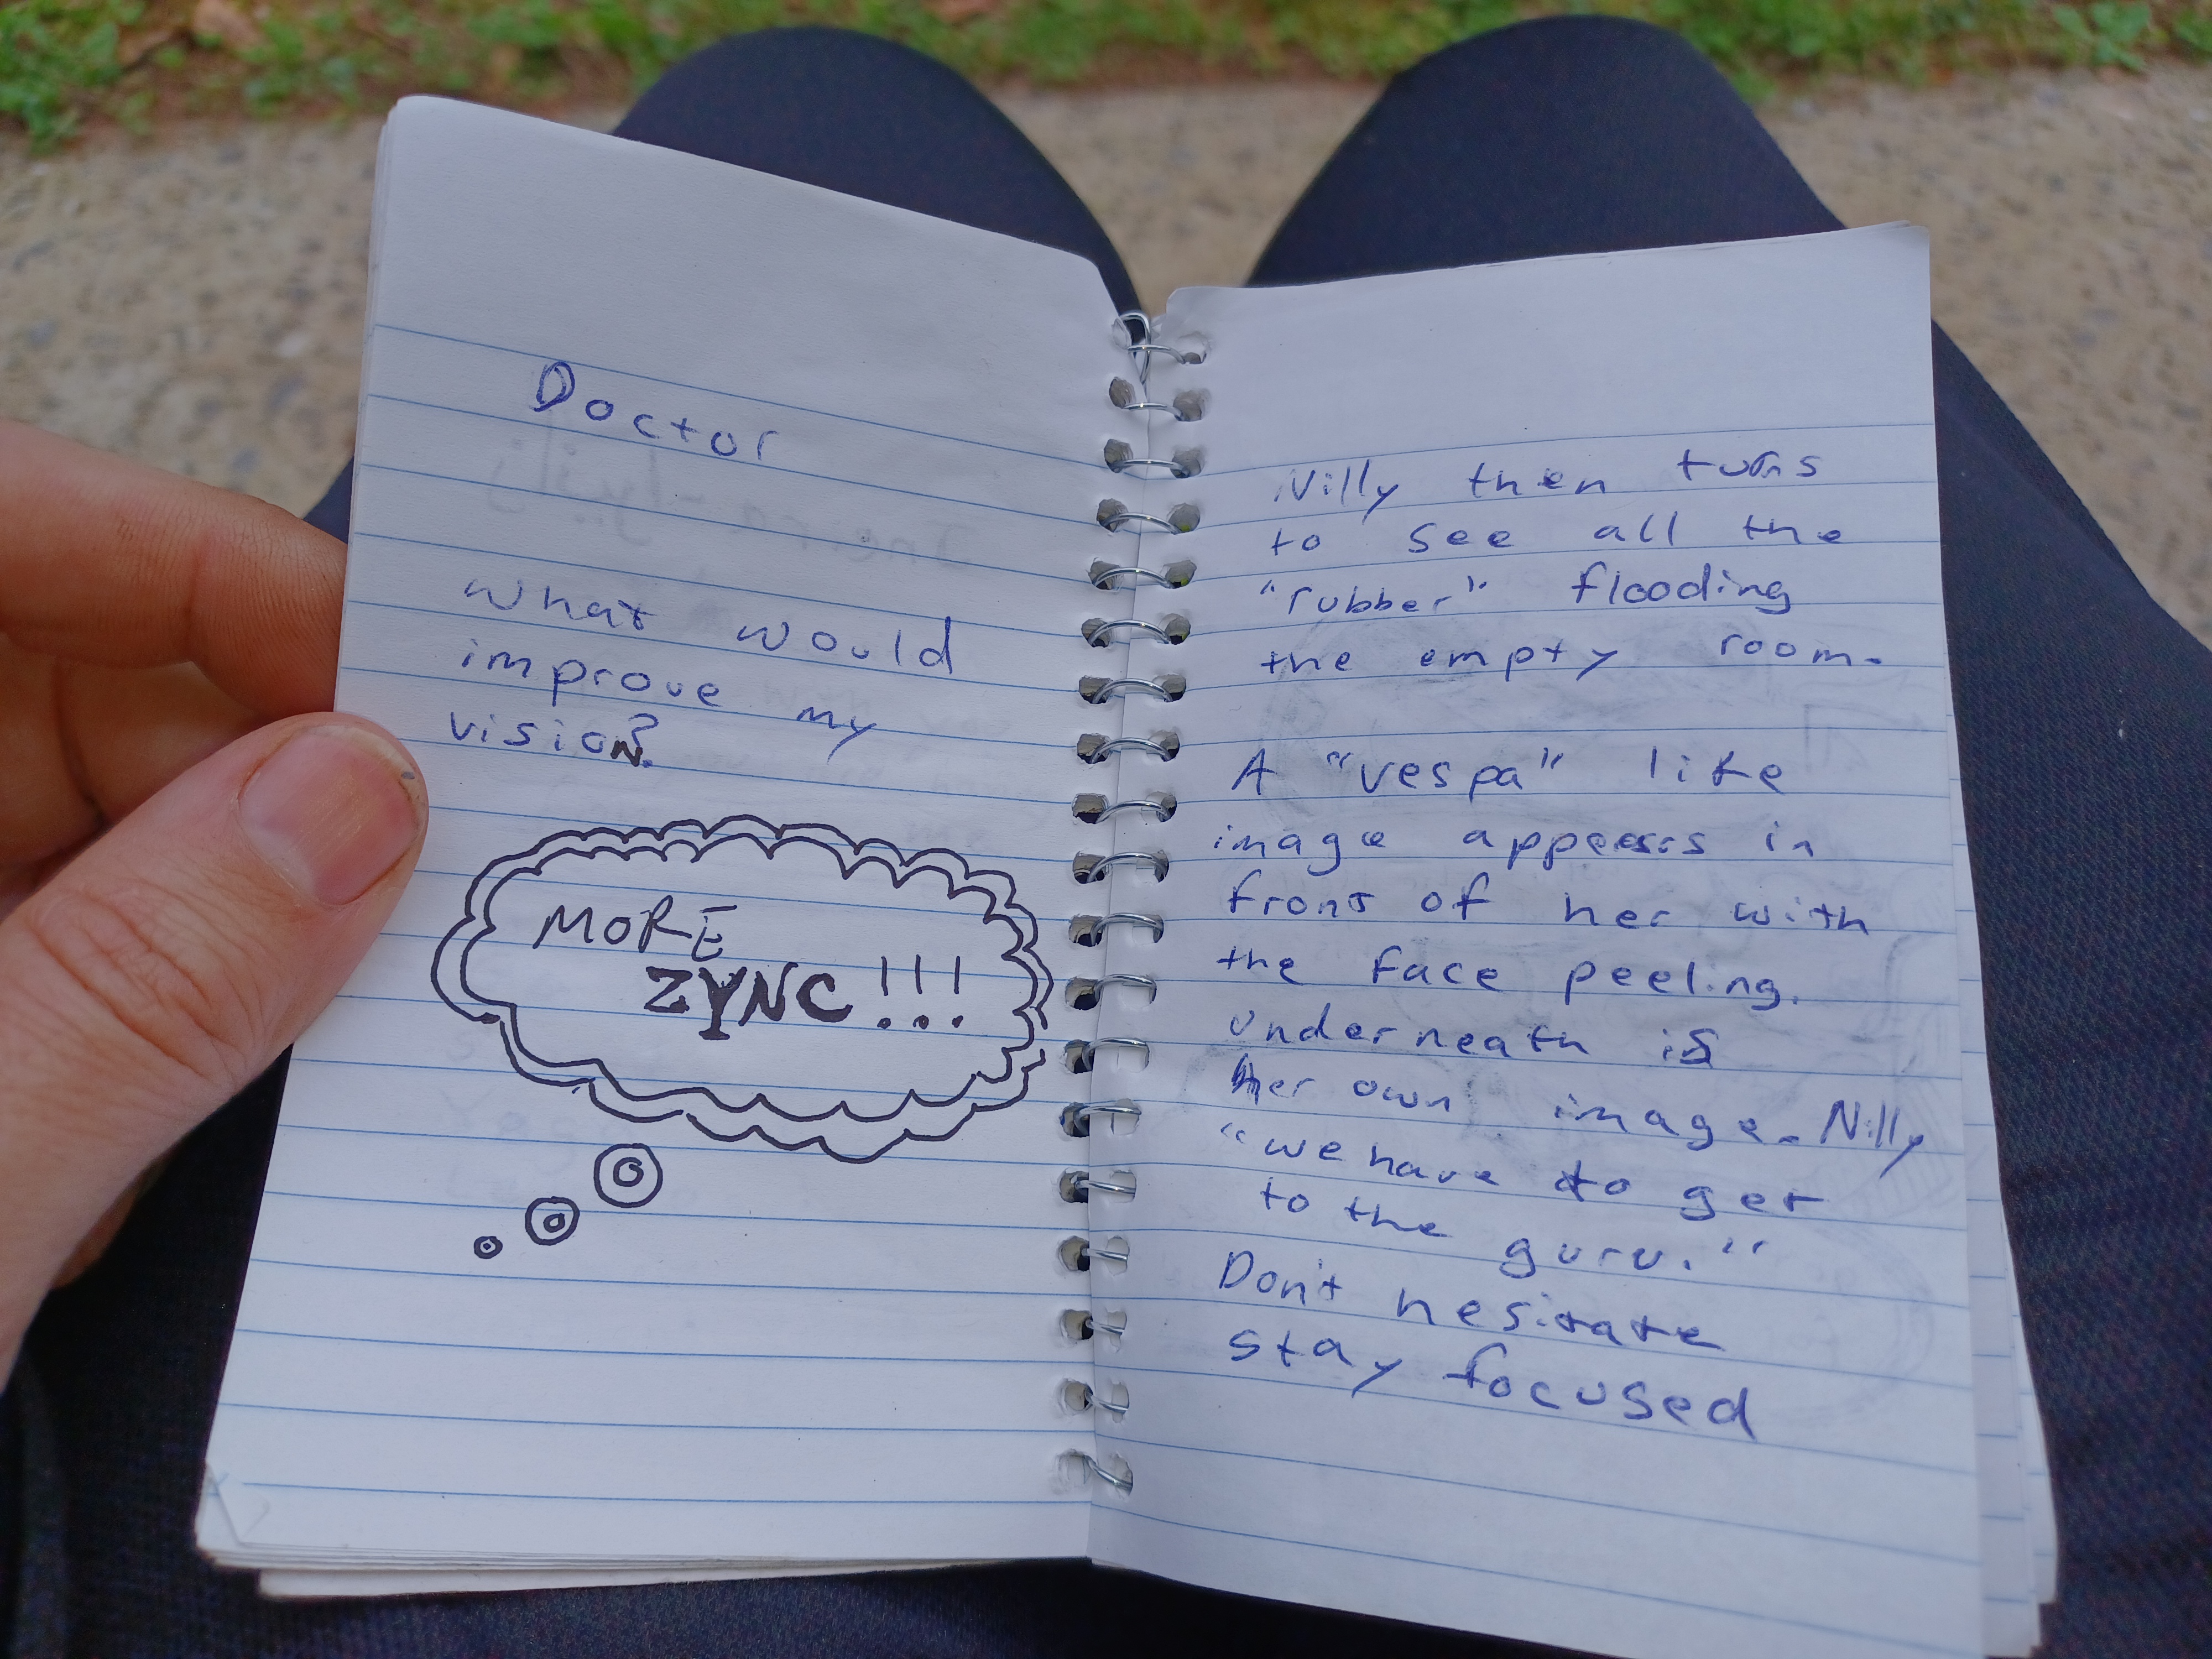 Doctor
what would
improve my
vision?
MORE
ZYNC!!!
Nilly then turns
to see all the
"rubber" flooding
the empty room.
A "vespa" like
image appears in
front of her with
the face peeling.
underneath is
her own image. Nilly
"we have to get
to the guru."
Don't hesitate
stay focused